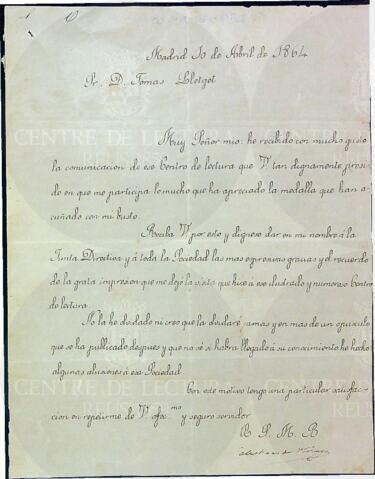 Madrid 10 de Abril de 1864
Sr. D. Tomas Lletget
Muy Señor mio: he recibido con mucho gusto
la comunicacion de ese Centro de lectura que V. tan dignamente presi-
de en que me participa lo mucho que ha apreciado la medalla que han a-
cuñado con mi busto.
Reciba V. por esto y dignese dar en mi nombre á la
Junta Directiva y á toda la Sociedad las mas espresivas gracias y el recuerdo
de la grata impresion que me dejó la visita que hice á ese ilustrado y numeroso Centro
de lectura.
No la he olvidado ni creo que la olvidaré jamas y en mas de un opusculo
que se ha publicado despues y que no sé si habrá llegado á su conocimiento he hecho
algunas alusiones á esa Sociedad
Con este motivo tengo una particular satisfac-
cion en repetirme de V. afec.mo y seguro servidor
B. S. M. B
CENTRE DE LECTURA
CENTRE DE LECTURA